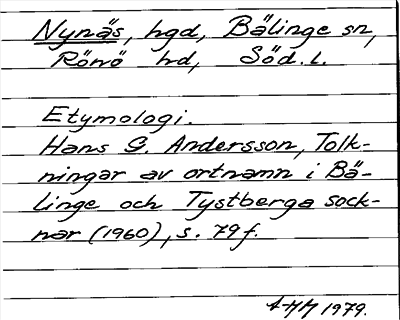 Nynäs, hgd, Bälinge sn,
Rönö hd, Söd.l.
Etymologi.
Hans G. Andersson, Tolk-
ningar av ortnamn i Bä-
linge och Tystberga sock-
nar (1960), s. 79f.
AHM 1979.